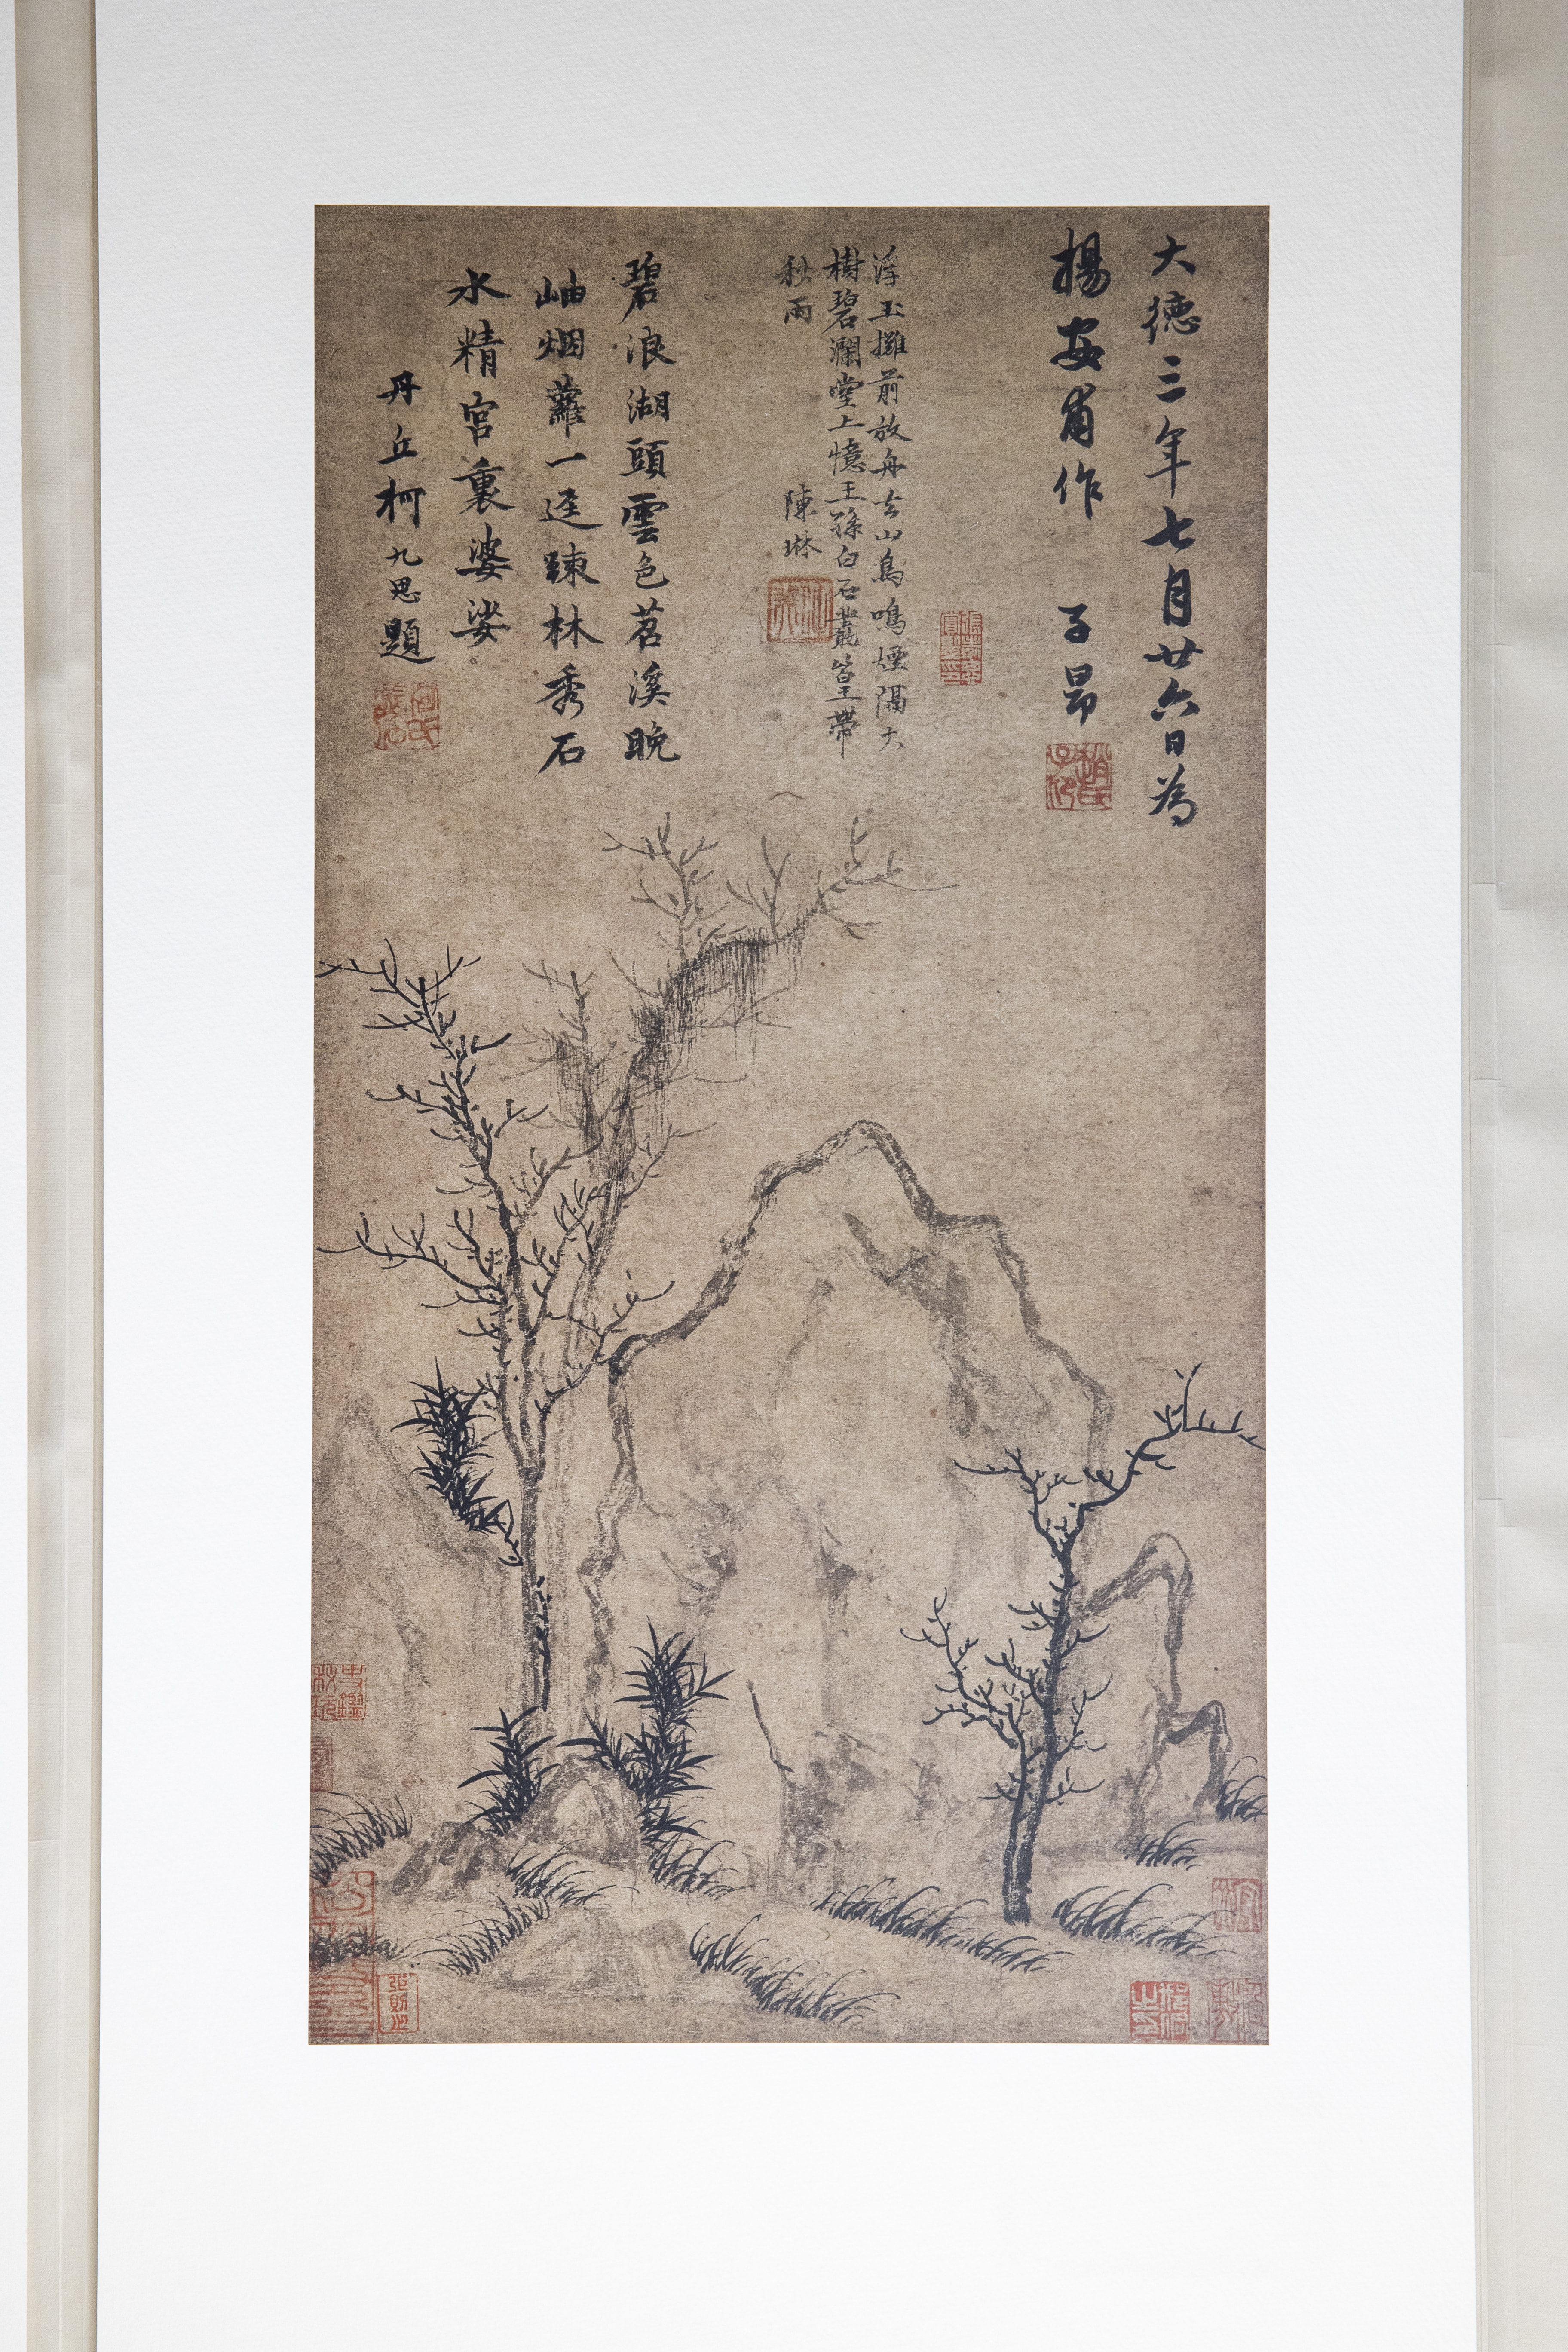 大德三年七月廿六日為
揚安甫作 子昂
趙氏子昂
浮玉灘前放舟去山鳥鳴煙隔大
樹碧瀾堂上憶王孫白石叢篁帶
秋雨 陳琳
碧浪湖頭雲色茗溪晚
岫烟蘿一迳踈林秀石
水精宮裏婆娑
丹丘柯九思題